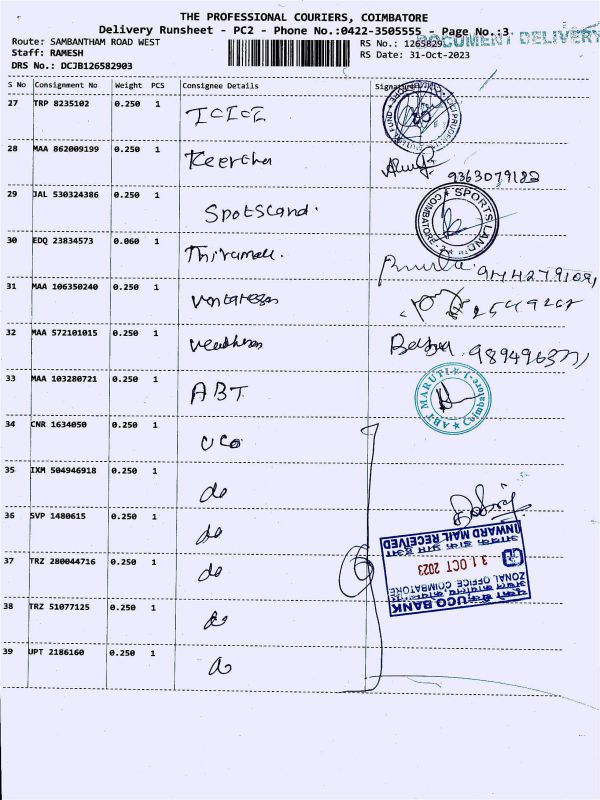 THE PROFESSIONAL COURIERS, COIMBATORE
Delivery Runsheet - PC2 - Phone No.:0422-3505555 - Page No.:3
DOCUMENT DELIVERY
Route: SAMBANTHAM ROAD WEST
RS No.: 1265829
Staff: RAMESH
RS Date: 31-Oct-2023
DRS No.: DCJB126582903
S No Consignment No Weight PCS Consignee Details
27 TRP 8235102 0.250 1 ICICI
28 MAA 862009199 0.250 1 Keertha
9363079182
29 JAL 530324386 0.250 1 Spotsland.
SPORTS LAND COIMBATORE-2
30 EDQ 23834573 0.060 1
31 MAA 106350240 0.250 1
32 MAA 572101015 0.250 1
33 MAA 103280721 0.250 1 ABT
ABT MARUTI Coimbatore-1
34 CNR 1634050 0.250 1 UCO
35 IXM 504946918 0.250 1 do
36 SVP 1480615 0.250 1 do
37 TRZ 280044716 0.250 1 do
6
38 TRZ 51077125 0.250 1 do
39 UPT 2186160 0.250 1 do
UCO BANK
ZONAL OFFICE, COIMBATORE
31 OCT 2023
INWARD MAIL RECEIVED